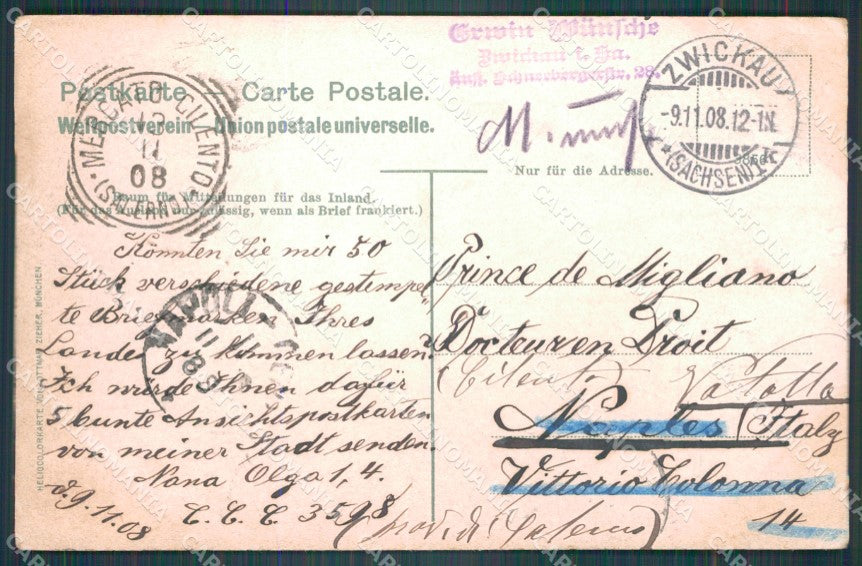 Erwin Wünsche
Zwickau i. Sa.
Äuß. Schneebergerstr. 28.
Postkarte — Carte Postale.
Weltpostverein — Union postale universelle.
ZWICKAU
-9.11.08.12-1N.
*(SACHSEN)1*
MERCATO CILENTO
13
11
08
(SALERNO)
Nur für die Adresse.
Raum für Mitteilungen für das Inland.
(Für das Ausland nur zulässig, wenn als Brief frankiert.)
Könnten Sie mir 50
Stück verschiedene gestempel-
te Briefmarken Ihres
Landes zu kommen lassen.
Ich würde Ihnen dafür
5 bunte Ansichtspostkarten
von meiner Stadt senden.
Nana Olga 1, 4.
d. 9.11.08
C. C. C. 3598
NAPOLI
11
Prince de Migliano
Docteur en Droit
(Cilento)
Vatolla
Naples (Italy
Vittorio Colonna
14
(prov. di Salerno)
HELIOCOLORKARTE VON OTTMAR ZIEHER, MÜNCHEN
CARTOLINOMANIA